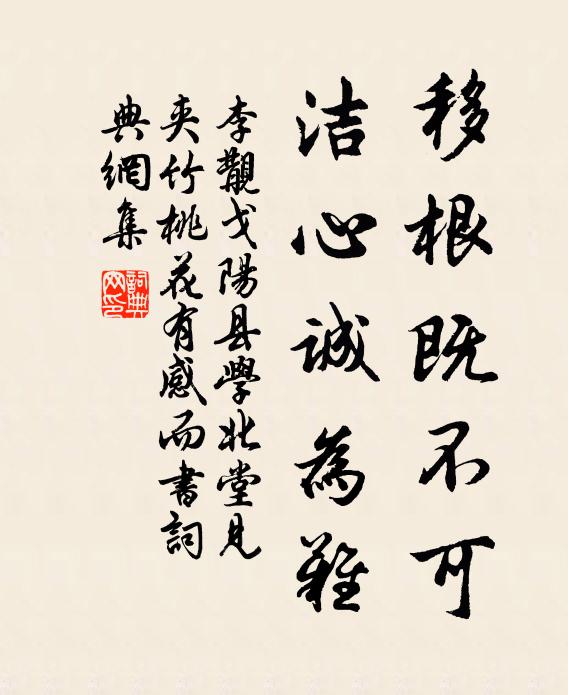 移根既不可
洁心誠為難
李觀戈陽县學北堂見
夹竹桃花有感而書詞
典網集
詞典網印